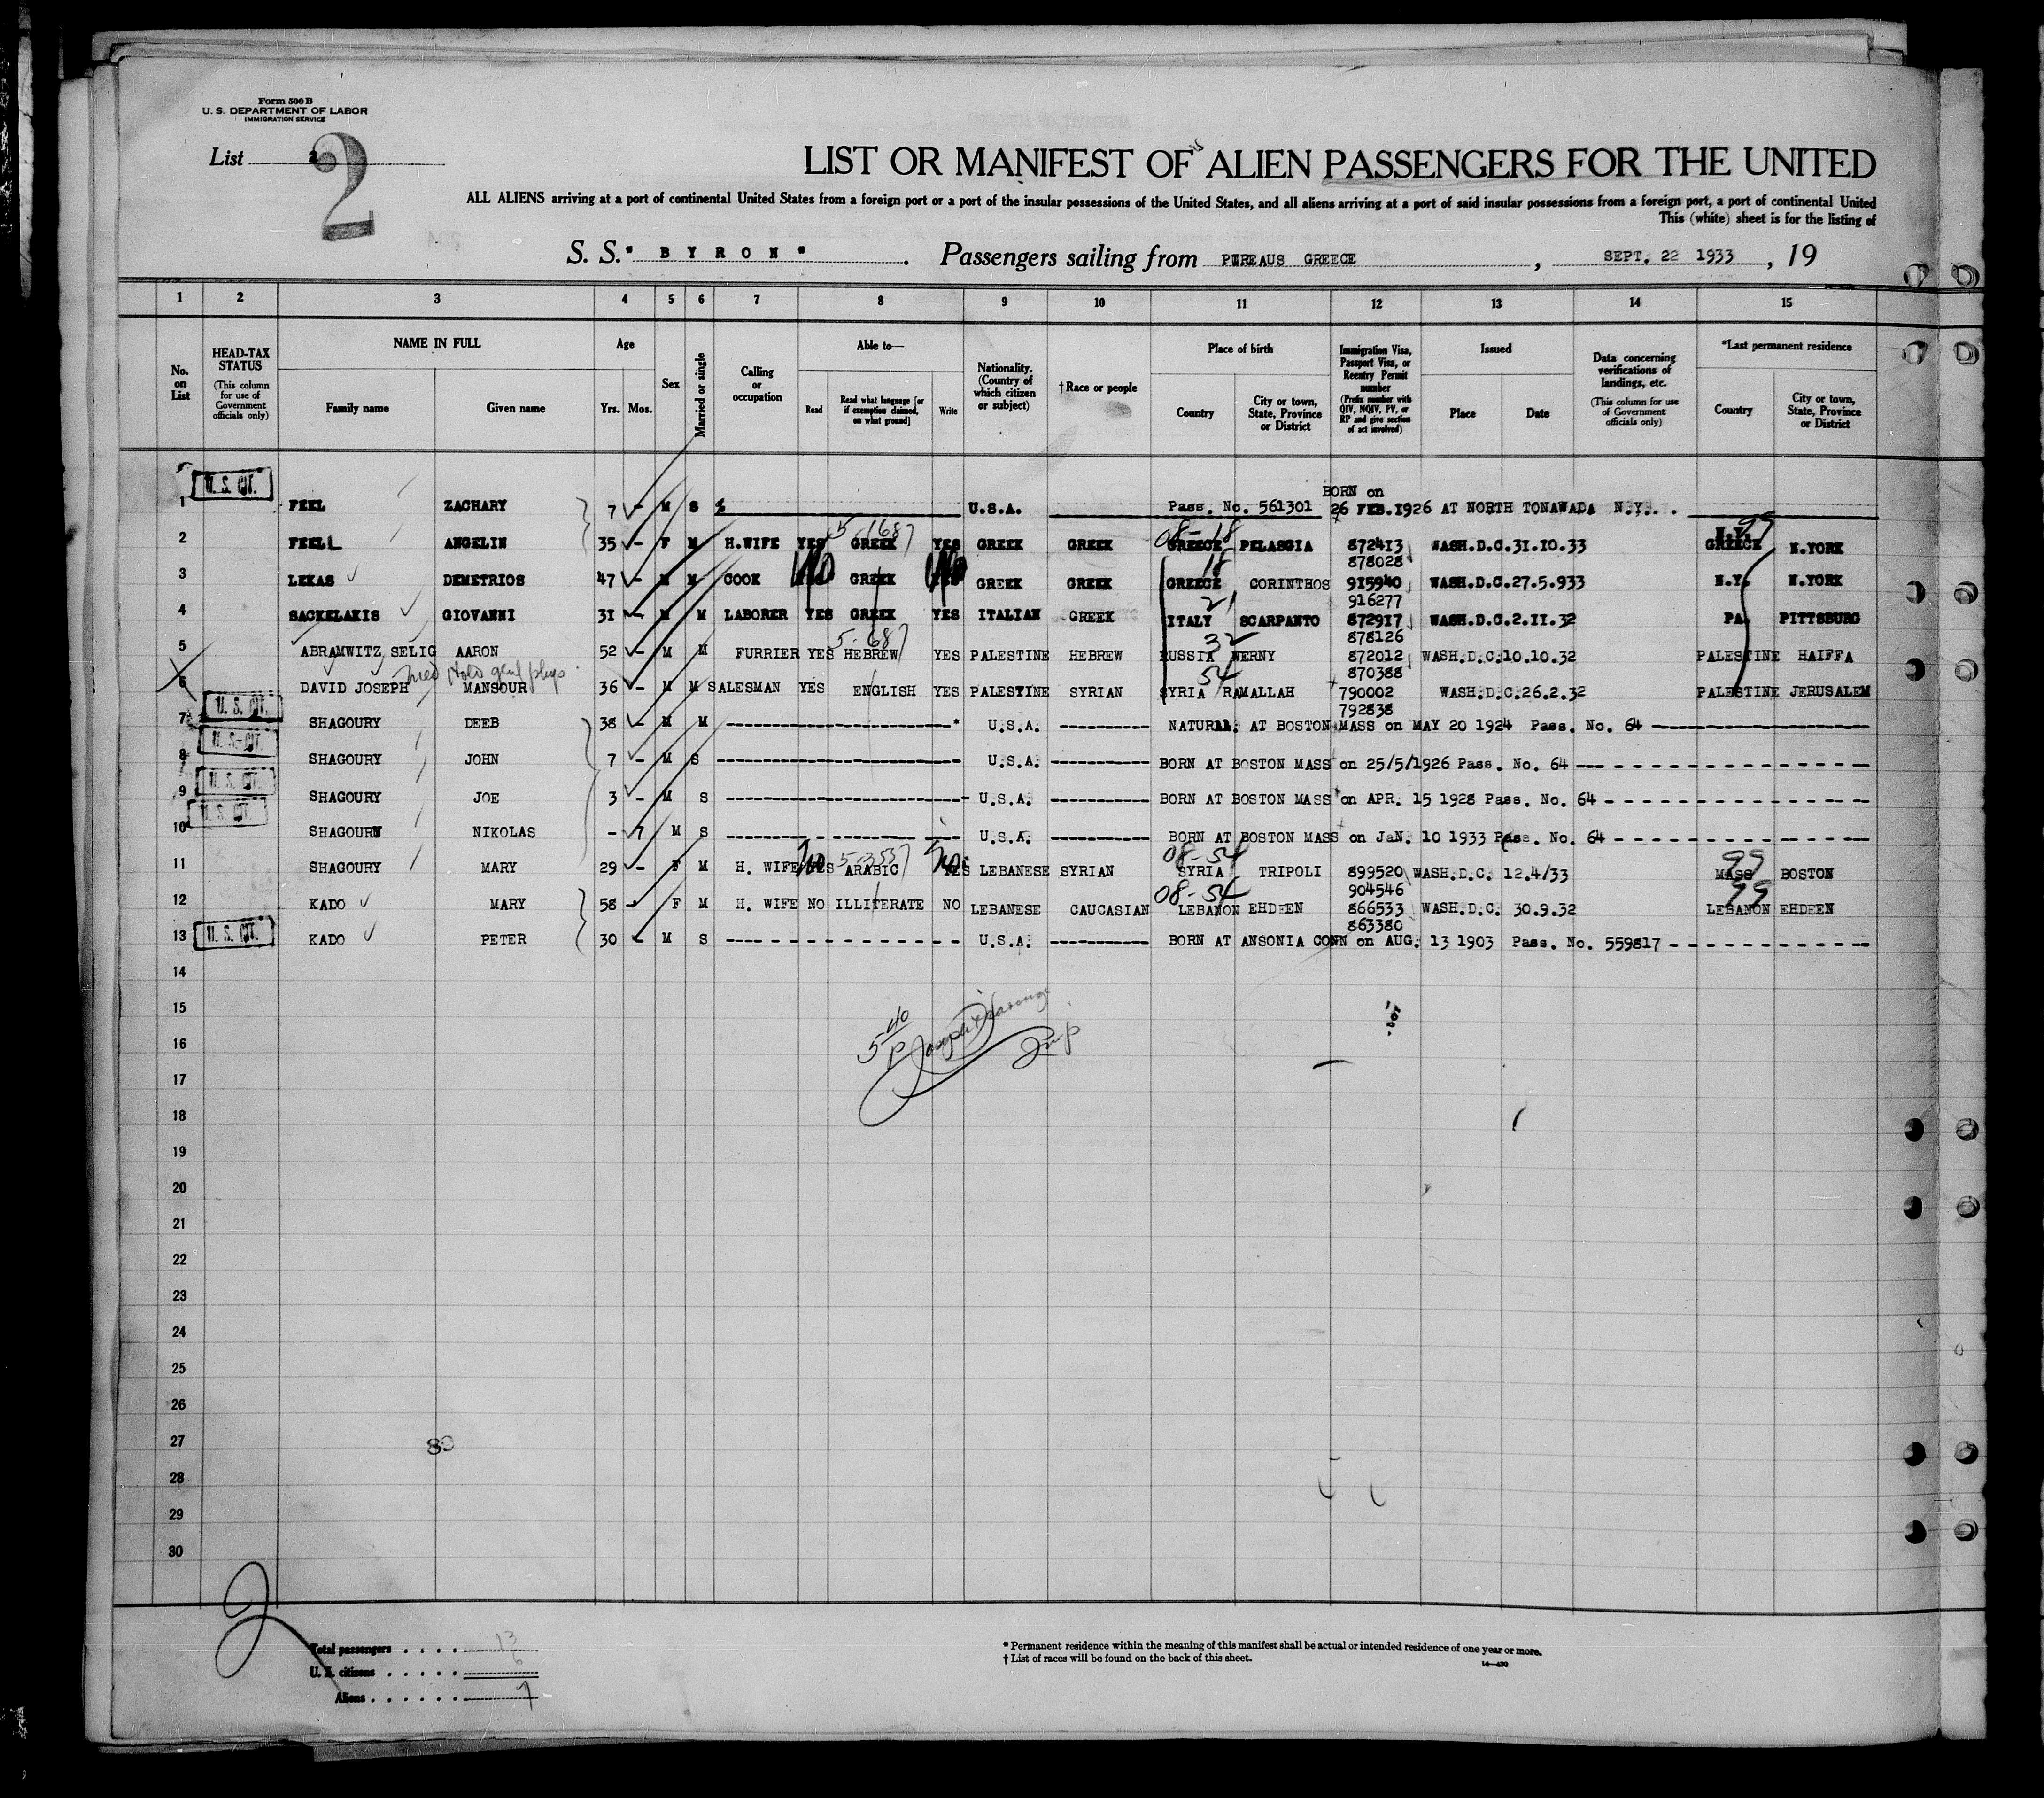 Form 500 B
U. S. DEPARTMENT OF LABOR
IMMIGRATION SERVICE
List 2
2
LIST OR MANIFEST OF ALIEN PASSENGERS FOR THE UNITED
ALL ALIENS arriving at a port of continental United States from a foreign port or a port of the insular possessions of the United States, and all aliens arriving at a port of said insular possessions from a foreign port, a port of continental United
This (white) sheet is for the listing of
S. S. " B Y R O N " . Passengers sailing from PIREAUS GREECE , SEPT. 22 1933 , 19
1 2 3 4 5 6 7 8 9 10 11 12 13 14 15
No. on List
HEAD-TAX STATUS
(This column for use of Government officials only)
NAME IN FULL
Family name Given name
Age
Yrs. Mos.
Sex
Married or single
Calling or occupation
Able to—
Read
Read what language [or if exemption claimed, on what ground]
Write
Nationality. (Country of which citizen or subject)
†Race or people
Place of birth
Country
City or town, State, Province or District
Immigration Visa, Passport Visa, or Reentry Permit number
(Prefix number with QIV, NQIV, PV, or RP and give section of act involved)
Issued
Place Date
Data concerning verifications of landings, etc.
(This column for use of Government officials only)
*Last permanent residence
Country
City or town, State, Province or District
U. S. CIT.
BORN on
1 FEEL ZACHARY 7 - M S U.S.A. Pass. No. 561301 26 FEB.1926 AT NORTH TONAWADA N.Y.
5-1687 08-18 99
2 FEELL ANGELIN 35 - F M H.WIFE YES GREEK YES GREEK GREEK GREECE PELASGIA 872413 WASH.D.C.31.10.33 GREECE N.YORK
878028
No No 18
3 LEKAS DEMETRIOS 47 - M M COOK GREEK GREEK GREEK GREECE CORINTHOS 915940 WASH.D.C.27.5.933 N.Y. N.YORK
916277
21
4 SACKELAKIS GIOVANNI 31 - M M LABORER YES GREEK YES ITALIAN GREEK ITALY SCARPANTO 872917 WASH.D.C.2.11.32 PA. PITTSBURG
878126
5-687 32
5 ABRAMWITZ SELIG AARON 52 - M M FURRIER YES HEBREW YES PALESTINE HEBREW RUSSIA WERNY 872012 WASH.D.C.10.10.32 PALESTINE HAIFFA
870388
Med Hold genl phys. 54
6 DAVID JOSEPH MANSOUR 36 - M M SALESMAN YES ENGLISH YES PALESTINE SYRIAN SYRIA RAMALLAH 790002 WASH.D.C.26.2.32 PALESTINE JERUSALEM
792838
U. S. CIT.
7 SHAGOURY DEEB 38 - M M U.S.A. NATURAL. AT BOSTON MASS on MAY 20 1924 Pass. No. 64
U. S. CIT.
8 SHAGOURY JOHN 7 - M S U.S.A. BORN AT BOSTON MASS on 25/5/1926 Pass. No. 64
U. S. CIT.
9 SHAGOURY JOE 3 - M S U.S.A. BORN AT BOSTON MASS on APR. 15 1928 Pass. No. 64
U. S. CIT.
10 SHAGOURY NIKOLAS - 7 M S U.S.A. BORN AT BOSTON MASS on JAN. 10 1933 Pass. No. 64
No 5-3537 No 08-54 99
11 SHAGOURY MARY 29 - F M H. WIFE YES ARABIC YES LEBANESE SYRIAN SYRIA TRIPOLI 899520 WASH.D.C. 12.4/33 MASS BOSTON
904546
08-54 99
12 KADO MARY 58 - F M H. WIFE NO ILLITERATE NO LEBANESE CAUCASIAN LEBANON EHDEEN 866533 WASH.D.C. 30.9.32 LEBANON EHDEEN
863380
U. S. CIT.
13 KADO PETER 30 - M S U.S.A. BORN AT ANSONIA CONN on AUG. 13 1903 Pass. No. 559817
14
15
16
17
18
19
20
21
22
23
24
25
26
27
28
29
30
Total passengers . . . . 13
U. S. citizens . . . . . 6
Aliens . . . . . . 7
* Permanent residence within the meaning of this manifest shall be actual or intended residence of one year or more.
† List of races will be found on the back of this sheet.
14—430